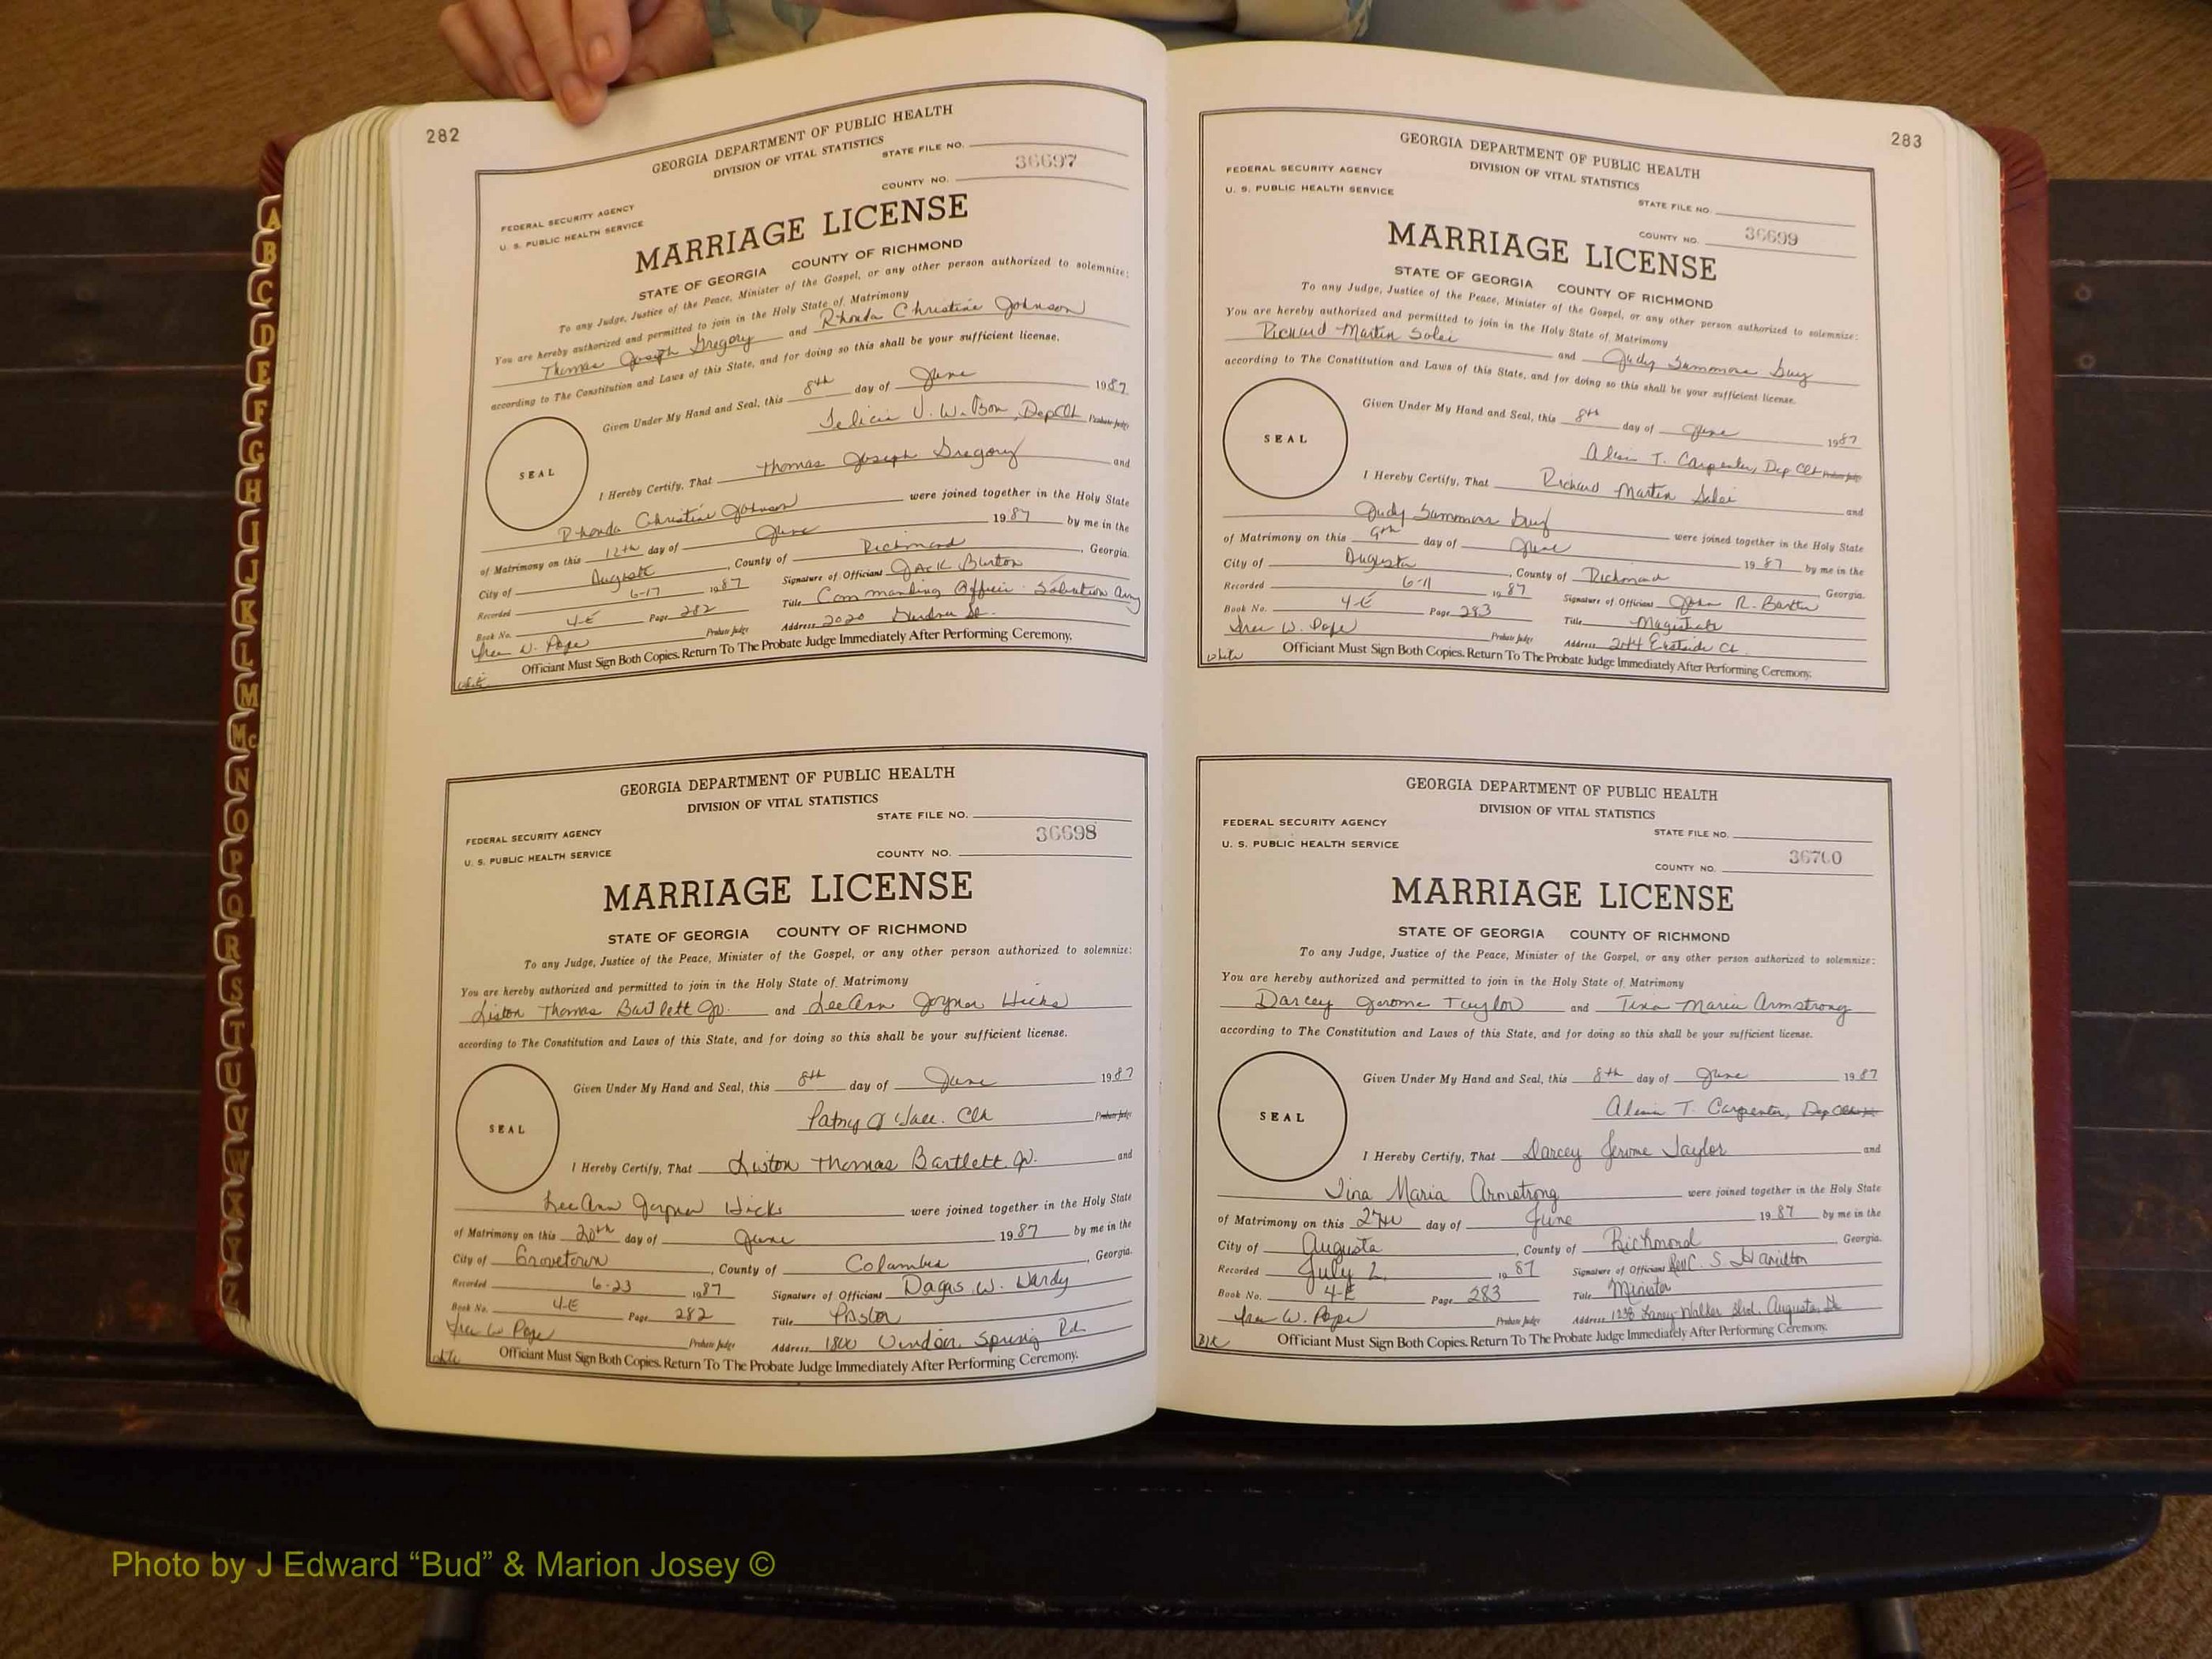 282
GEORGIA DEPARTMENT OF PUBLIC HEALTH
DIVISION OF VITAL STATISTICS
STATE FILE NO.
36697
COUNTY NO.
FEDERAL SECURITY AGENCY
U. S. PUBLIC HEALTH SERVICE
MARRIAGE LICENSE
STATE OF GEORGIA COUNTY OF RICHMOND
To any Judge, Justice of the Peace, Minister of the Gospel, or any other person authorized to solemnize:
You are hereby authorized and permitted to join in the Holy State of Matrimony
Thomas Joseph Gregory and Rhonda Christine Johnson
according to The Constitution and Laws of this State, and for doing so this shall be your sufficient license.
Given Under My Hand and Seal, this 8th day of June 1987
Dep Clk Probate Judge
SEAL
I Hereby Certify, That Thomas Joseph Gregory and
Rhonda Christine Johnson were joined together in the Holy State
of Matrimony on this 12th day of June 1987 by me in the
City of Augusta, County of Richmond, Georgia.
Recorded 6-17 1987 Signature of Officiant Jack Burton
Book No. 4-E Page 282 Title Commanding Officer Salvation Army
Probate Judge Address 2020
W. Pope
Officiant Must Sign Both Copies. Return To The Probate Judge Immediately After Performing Ceremony.
white
GEORGIA DEPARTMENT OF PUBLIC HEALTH
DIVISION OF VITAL STATISTICS
STATE FILE NO.
36698
FEDERAL SECURITY AGENCY
U. S. PUBLIC HEALTH SERVICE
COUNTY NO.
MARRIAGE LICENSE
STATE OF GEORGIA COUNTY OF RICHMOND
To any Judge, Justice of the Peace, Minister of the Gospel, or any other person authorized to solemnize:
You are hereby authorized and permitted to join in the Holy State of Matrimony
Liston Thomas Bartlett Jr. and LeeAnn Joyner Hicks
according to The Constitution and Laws of this State, and for doing so this shall be your sufficient license.
Given Under My Hand and Seal, this 8th day of June 1987
Clk Probate Judge
SEAL
I Hereby Certify, That Liston Thomas Bartlett Jr. and
LeeAnn Joyner Hicks were joined together in the Holy State
of Matrimony on this 20th day of June 1987 by me in the
City of Grovetown, County of Columbia, Georgia.
Recorded 6-23 1987 Signature of Officiant W. Hardy
Book No. 4-E Page 282 Title Pastor
W Pope Probate Judge Address 1800 Spring Rd
white
Officiant Must Sign Both Copies. Return To The Probate Judge Immediately After Performing Ceremony.
283
GEORGIA DEPARTMENT OF PUBLIC HEALTH
DIVISION OF VITAL STATISTICS
FEDERAL SECURITY AGENCY
U. S. PUBLIC HEALTH SERVICE
STATE FILE NO.
COUNTY NO. 36699
MARRIAGE LICENSE
STATE OF GEORGIA COUNTY OF RICHMOND
To any Judge, Justice of the Peace, Minister of the Gospel, or any other person authorized to solemnize:
You are hereby authorized and permitted to join in the Holy State of Matrimony
Richard Martin and Judy Summons Guy
according to The Constitution and Laws of this State, and for doing so this shall be your sufficient license.
Given Under My Hand and Seal, this 8th day of June 1987
T. Carpenter, Dep Clk Probate Judge
SEAL
I Hereby Certify, That Richard Martin and
Judy Summons Guy were joined together in the Holy State
of Matrimony on this 9th day of June 1987 by me in the
City of Augusta, County of Richmond Georgia.
Recorded 6-11 1987 Signature of Officiant John R. Baxter
Book No. 4-E Page 283 Title Magistrate
W. Pope Probate Judge Address 2044 Eastside Ct.
white
Officiant Must Sign Both Copies. Return To The Probate Judge Immediately After Performing Ceremony.
GEORGIA DEPARTMENT OF PUBLIC HEALTH
DIVISION OF VITAL STATISTICS
FEDERAL SECURITY AGENCY
U. S. PUBLIC HEALTH SERVICE
STATE FILE NO.
36700
COUNTY NO.
MARRIAGE LICENSE
STATE OF GEORGIA COUNTY OF RICHMOND
To any Judge, Justice of the Peace, Minister of the Gospel, or any other person authorized to solemnize:
You are hereby authorized and permitted to join in the Holy State of Matrimony
Darcey Jerome Taylor and Tina Maria Armstrong
according to The Constitution and Laws of this State, and for doing so this shall be your sufficient license.
Given Under My Hand and Seal, this 8th day of June 1987
T. Carpenter, Dep Clk
SEAL
I Hereby Certify, That Darcey Jerome Taylor and
Tina Maria Armstrong were joined together in the Holy State
of Matrimony on this day of June 1987 by me in the
City of Augusta, County of Richmond Georgia.
Recorded July 2, 1987 Signature of Officiant Rev C. S. Hamilton
Book No. 4-E Page 283 Title Minister
W. Pope Probate Judge Address 1238 Laney-Walker Blvd. Augusta, Ga
Blk
Officiant Must Sign Both Copies. Return To The Probate Judge Immediately After Performing Ceremony.
A
B
C
D
E
F
G
H
I
J
K
L
M
Mc
N
O
P
Q
R
S
T
U
V
W
X
Y
Z
Photo by J Edward “Bud” & Marion Josey ©